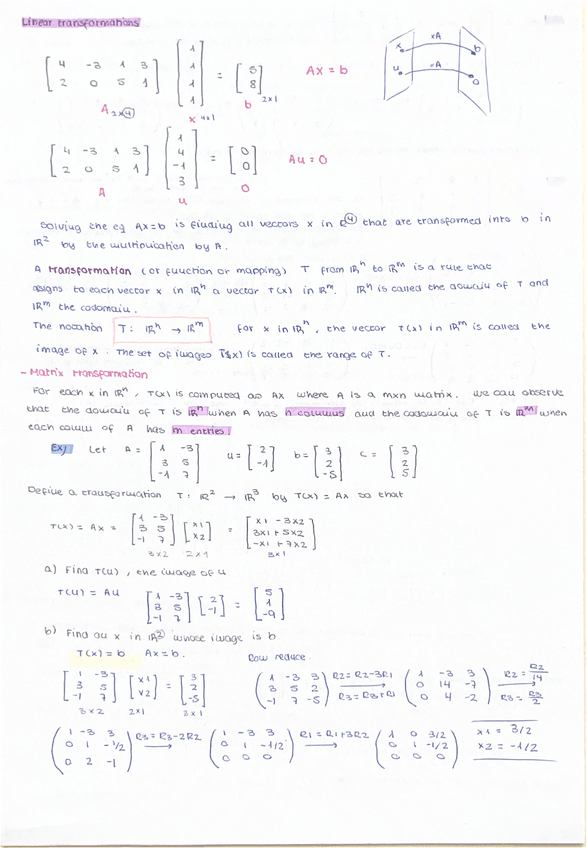 Linear transformations
[ 4 -3 1 3 ; 2 0 5 1 ] [ 1 ; 1 ; 1 ; 1 ] = [ 5 ; 8 ] 2x1 Ax = b
A 2x4 x 4x1 b
x xA b
u xA 0
[ 4 -3 1 3 ; 2 0 5 1 ] [ 1 ; 4 ; -1 ; 3 ] = [ 0 ; 0 ] Au = 0
A u 0
Solving the eq Ax=b is finding all vectors x in ℝ④ that are transformed into b in
ℝ² by the multiplication by A.
A transformation (or function or mapping) T from ℝⁿ to ℝᵐ is a rule that
assigns to each vector x in ℝⁿ a vector T(x) in ℝᵐ. ℝⁿ is called the domain of T and
ℝᵐ the codomain.
The notation T: ℝⁿ → ℝᵐ for x in ℝⁿ, the vector T(x) in ℝᵐ is called the
image of x. The set of images T(x) is called the range of T.
- Matrix transformation
For each x in ℝⁿ, T(x) is computed as Ax where A is a mxn matrix. We can observe
that the domain of T is ℝⁿ when A has n columns and the codomain of T is ℝᵐ when
each column of A has m entries.
Ex) Let A = [ 1 -3 ; 3 5 ; -1 7 ] u = [ 2 ; -1 ] b = [ 3 ; 2 ; -5 ] c = [ 3 ; 2 ; 5 ]
Define a transformation T: ℝ² → ℝ³ by T(x) = Ax so that
T(x) = Ax = [ 1 -3 ; 3 5 ; -1 7 ] [ x1 ; x2 ] = [ x1 - 3x2 ; 3x1 + 5x2 ; -x1 + 7x2 ]
3x2 2x1 3x1
a) Find T(u), the image of u
T(u) = Au [ 1 -3 ; 3 5 ; -1 7 ] [ 2 ; -1 ] = [ 5 ; 1 ; -9 ]
b) Find all x in ℝ② whose image is b
T(x) = b Ax = b. Row reduce
[ 1 -3 ; 3 5 ; -1 7 ] [ x1 ; x2 ] = [ 3 ; 2 ; -5 ] ( 1 -3 3 ; 3 5 2 ; -1 7 -5 ) R2=R2-3R1 R3=R3+R1 → ( 1 -3 3 ; 0 14 -7 ; 0 4 -2 ) R2=R2/14 R3=R3/2
3x2 2x1 3x1
( 1 -3 3 ; 0 1 -1/2 ; 0 2 -1 ) R3=R3-2R2 → ( 1 -3 3 ; 0 1 -1/2 ; 0 0 0 ) R1=R1+3R2 → ( 1 0 3/2 ; 0 1 -1/2 ; 0 0 0 ) x1 = 3/2
x2 = -1/2